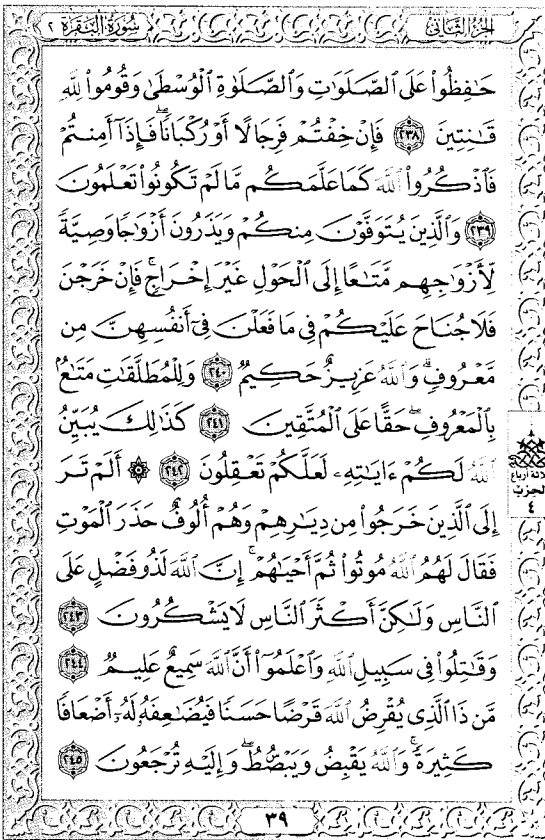 الجزء الثاني
سورة البقرة ٢
حَٰفِظُوا۟ عَلَى ٱلصَّلَوَٰتِ وَٱلصَّلَوٰةِ ٱلْوُسْطَىٰ وَقُومُوا۟ لِلَّهِ
قَٰنِتِينَ ﴿٢٣٨﴾ فَإِنْ خِفْتُمْ فَرِجَالًا أَوْ رُكْبَانًا ۖ فَإِذَآ أَمِنتُمْ
فَٱذْكُرُوا۟ ٱللَّهَ كَمَا عَلَّمَكُم مَّا لَمْ تَكُونُوا۟ تَعْلَمُونَ
﴿٢٣٩﴾ وَٱلَّذِينَ يُتَوَفَّوْنَ مِنكُمْ وَيَذَرُونَ أَزْوَٰجًا وَصِيَّةً
لِّأَزْوَٰجِهِم مَّتَٰعًا إِلَى ٱلْحَوْلِ غَيْرَ إِخْرَاجٍ ۚ فَإِنْ خَرَجْنَ
فَلَا جُنَاحَ عَلَيْكُمْ فِى مَا فَعَلْنَ فِىٓ أَنفُسِهِنَّ مِن
مَّعْرُوفٍ ۗ وَٱللَّهُ عَزِيزٌ حَكِيمٌ ﴿٢٤٠﴾ وَلِلْمُطَلَّقَٰتِ مَتَٰعٌۢ
بِٱلْمَعْرُوفِ ۖ حَقًّا عَلَى ٱلْمُتَّقِينَ ﴿٢٤١﴾ كَذَٰلِكَ يُبَيِّنُ
ٱللَّهُ لَكُمْ ءَايَٰتِهِۦ لَعَلَّكُمْ تَعْقِلُونَ ﴿٢٤٢﴾ ۞ أَلَمْ تَرَ
إِلَى ٱلَّذِينَ خَرَجُوا۟ مِن دِيَٰرِهِمْ وَهُمْ أُلُوفٌ حَذَرَ ٱلْمَوْتِ
فَقَالَ لَهُمُ ٱللَّهُ مُوتُوا۟ ثُمَّ أَحْيَٰهُمْ ۚ إِنَّ ٱللَّهَ لَذُو فَضْلٍ عَلَى
ٱلنَّاسِ وَلَٰكِنَّ أَكْثَرَ ٱلنَّاسِ لَا يَشْكُرُونَ ﴿٢٤٣﴾
وَقَٰتِلُوا۟ فِى سَبِيلِ ٱللَّهِ وَٱعْلَمُوٓا۟ أَنَّ ٱللَّهَ سَمِيعٌ عَلِيمٌ ﴿٢٤٤﴾
مَّن ذَا ٱلَّذِى يُقْرِضُ ٱللَّهَ قَرْضًا حَسَنًا فَيُضَٰعِفَهُۥ لَهُۥٓ أَضْعَافًا
كَثِيرَةً ۚ وَٱللَّهُ يَقْبِضُ وَيَبْصُۜطُ وَإِلَيْهِ تُرْجَعُونَ ﴿٢٤٥﴾
ثلاثة أرباع
الحزب
٤
٣٩